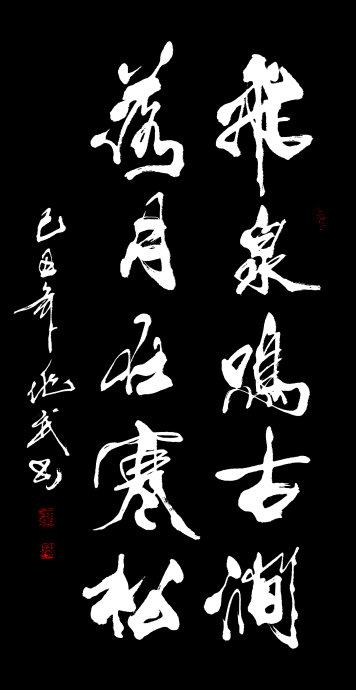 飛泉鳴古澗
落月在寒松
己丑年
武書